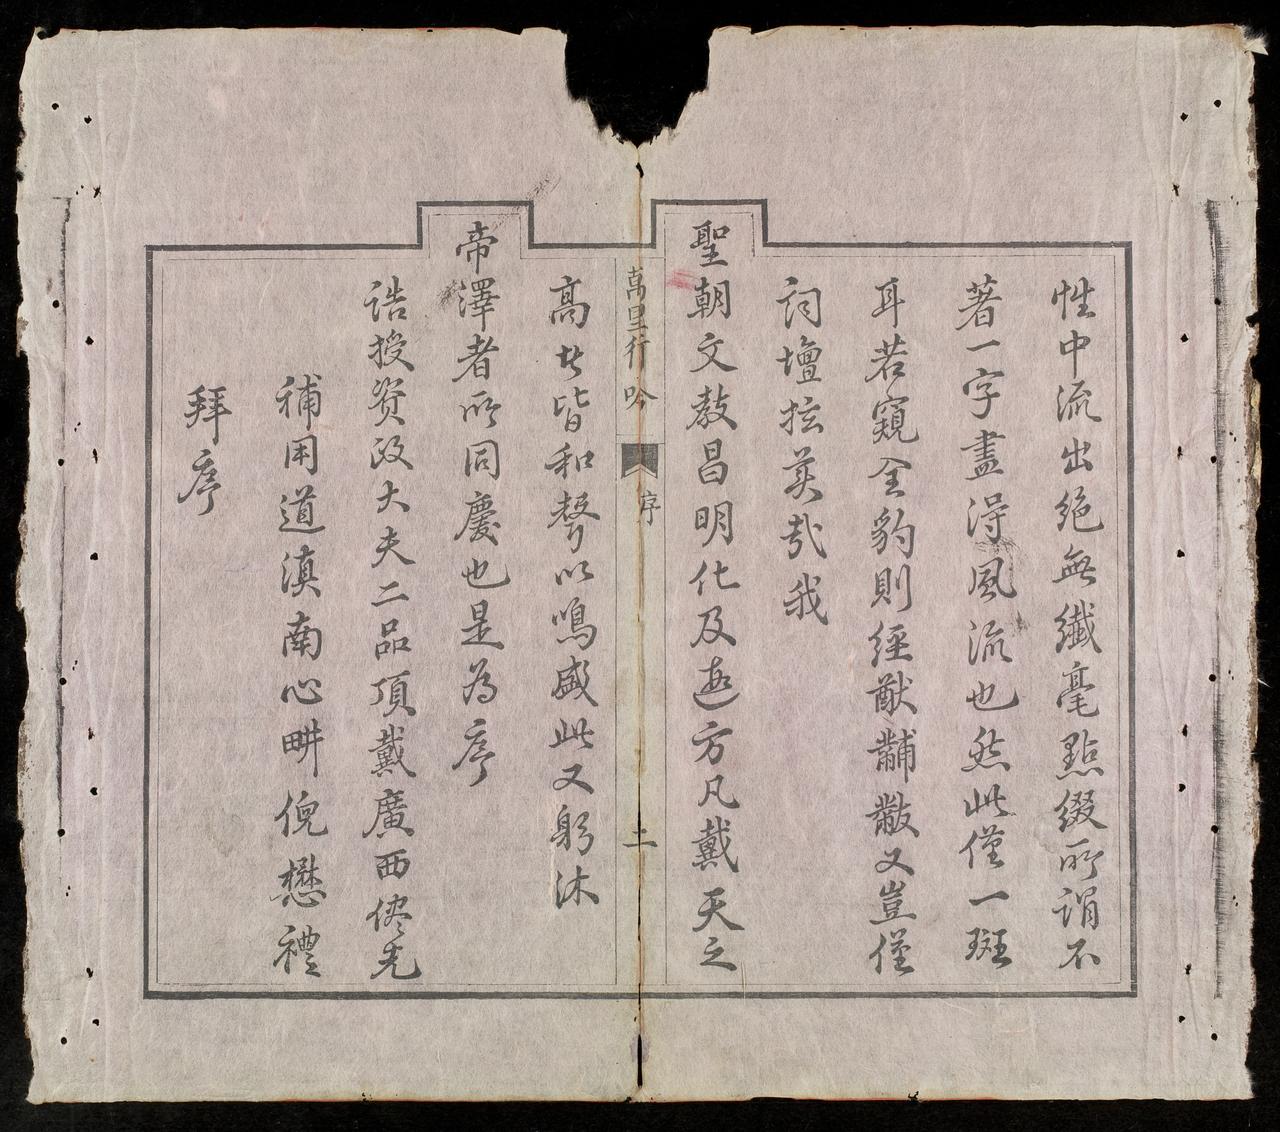 性中流出絕無纖毫點綴所謂不
著一字盡得風流也然此僅一斑
耳若窺全豹則經猷黼黻又豈僅
詞壇擅美哉我
聖朝文教昌明化及遐方凡戴天之
萬里行吟
序
土
高皆和聲以鳴盛此又躬沐
帝澤者所同慶也是為序
誥授資政大夫二品頂戴廣西儘先
補用道滇南心畊倪懋禮
拜序